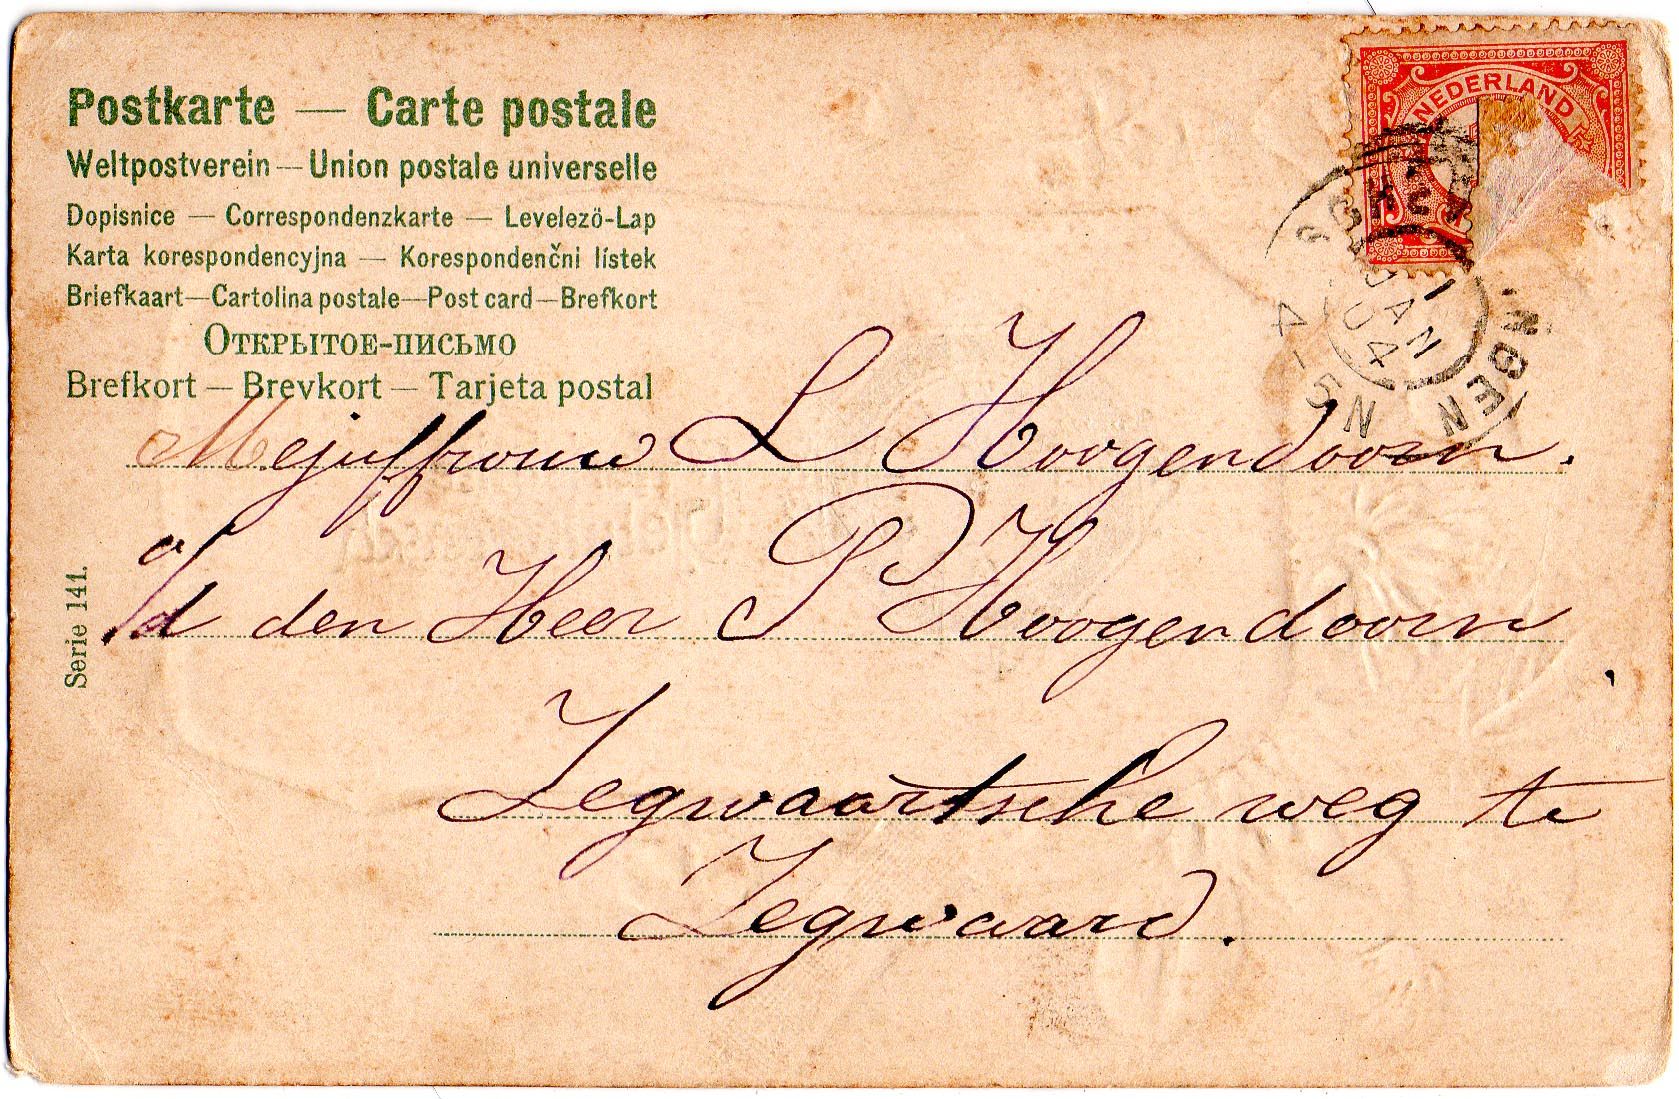 Postkarte — Carte postale
Weltpostverein — Union postale universelle
Dopisnice — Correspondenzkarte — Levelező-Lap
Karta korespondencyjna — Korespondenčni lístek
Briefkaart — Cartolina postale — Post card — Brefkort
Открытое-письмо
Brefkort — Brevkort — Tarjeta postal
NEDERLAND
1 JAN
04
4-5 N
Mejuffrouw L Hoogendoorn.
a/d den Heer P Hoogendoorn
Zegwaartsche weg te
Zegwaard.
Serie 141.